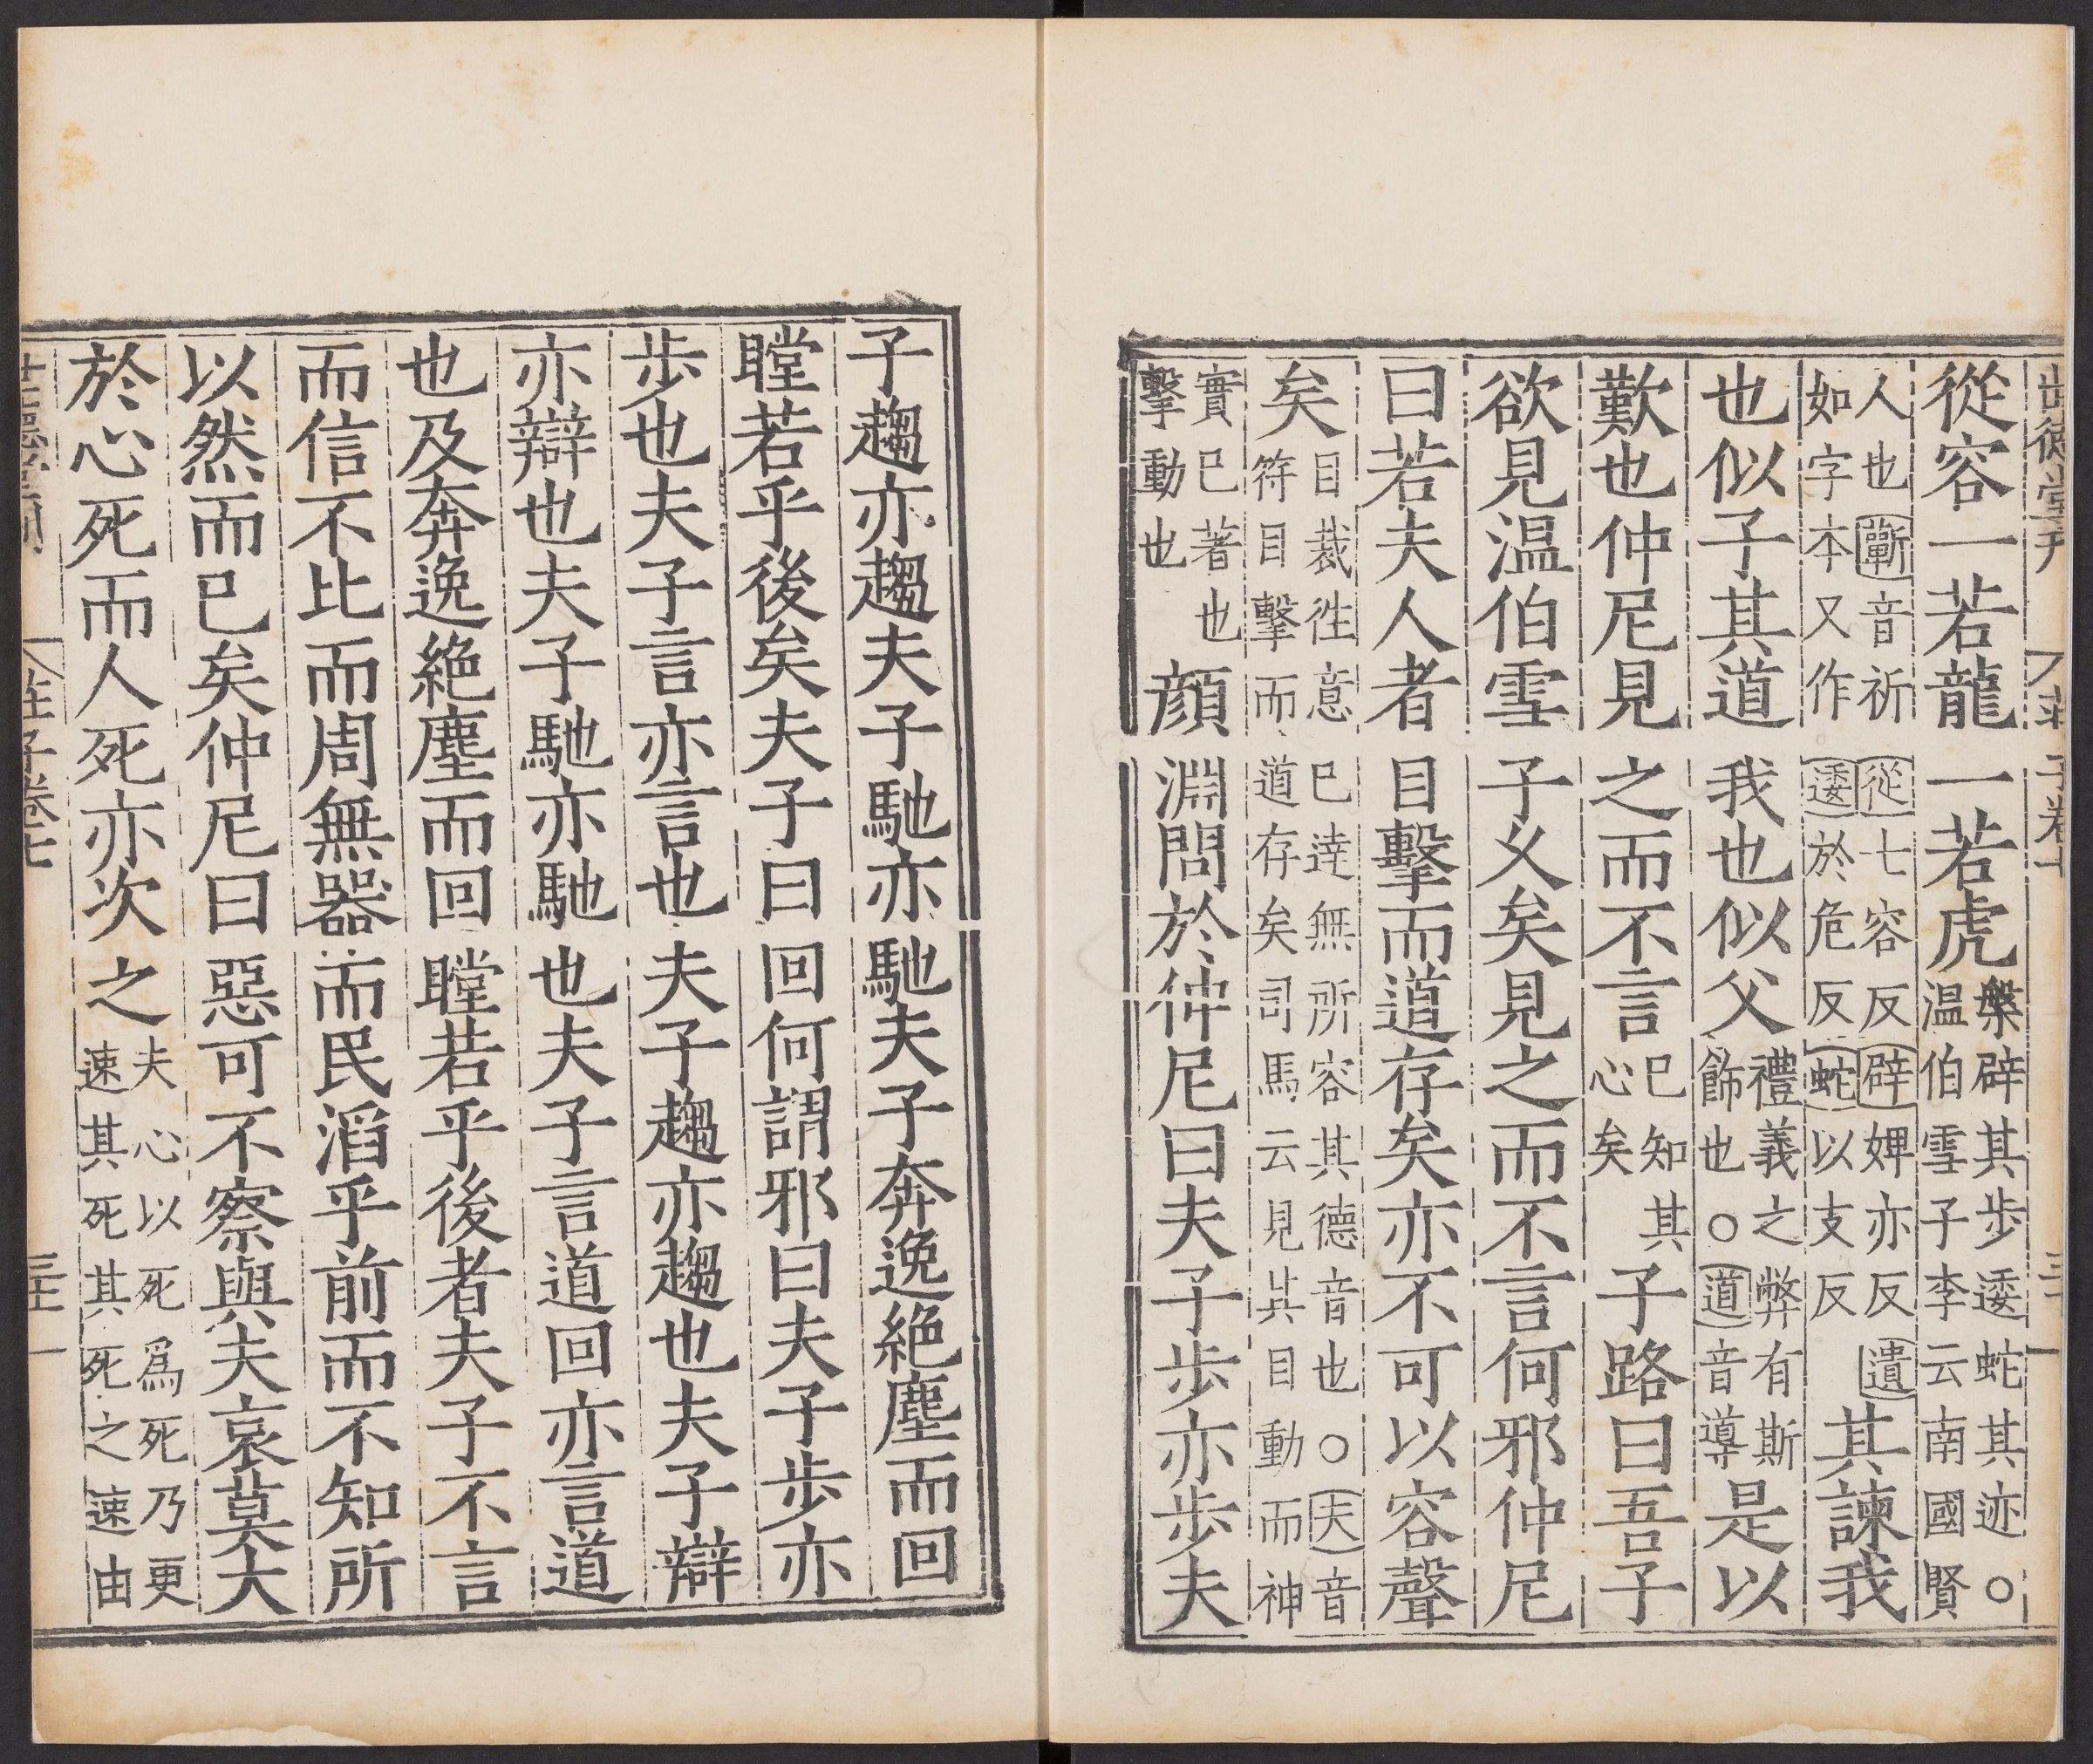 世德堂刊 莊子卷七 三十一
從容一若龍一若虎槃辟其步逶蛇其迹○温伯雪子李云南國賢
人也蘄音祈從七容反辟婢亦反遺如字本又作逶於危反蛇以支反其諫我
也似子其道我也似父禮義之弊有斯飾也○道音導是以
歎也仲尼見之而不言已知其心矣子路曰吾子
欲見温伯雪子乆矣見之而不言何邪仲尼
曰若夫人者目擊而道存矣亦不可以容聲
矣目裁徃意已逹無所容其德音也○夫音符目擊而道存矣司馬云見其目動而神
實已著也擊動也顔淵問於仲尼曰夫子步亦步夫
子趨亦趨夫子馳亦馳夫子奔逸絶塵而回
瞠若乎後矣夫子曰回何謂邪曰夫子步亦
步也夫子言亦言也夫子趨亦趨也夫子辯
亦辯也夫子馳亦馳也夫子言道回亦言道
也及奔逸絶塵而回瞠若乎後者夫子不言
而信不比而周無器而民滔乎前而不知所
以然而已矣仲尼曰惡可不察與夫哀莫大
於心死而人死亦次之夫心以死爲死乃更速其死其死之速由
世德堂刊 莊子卷七 三十一